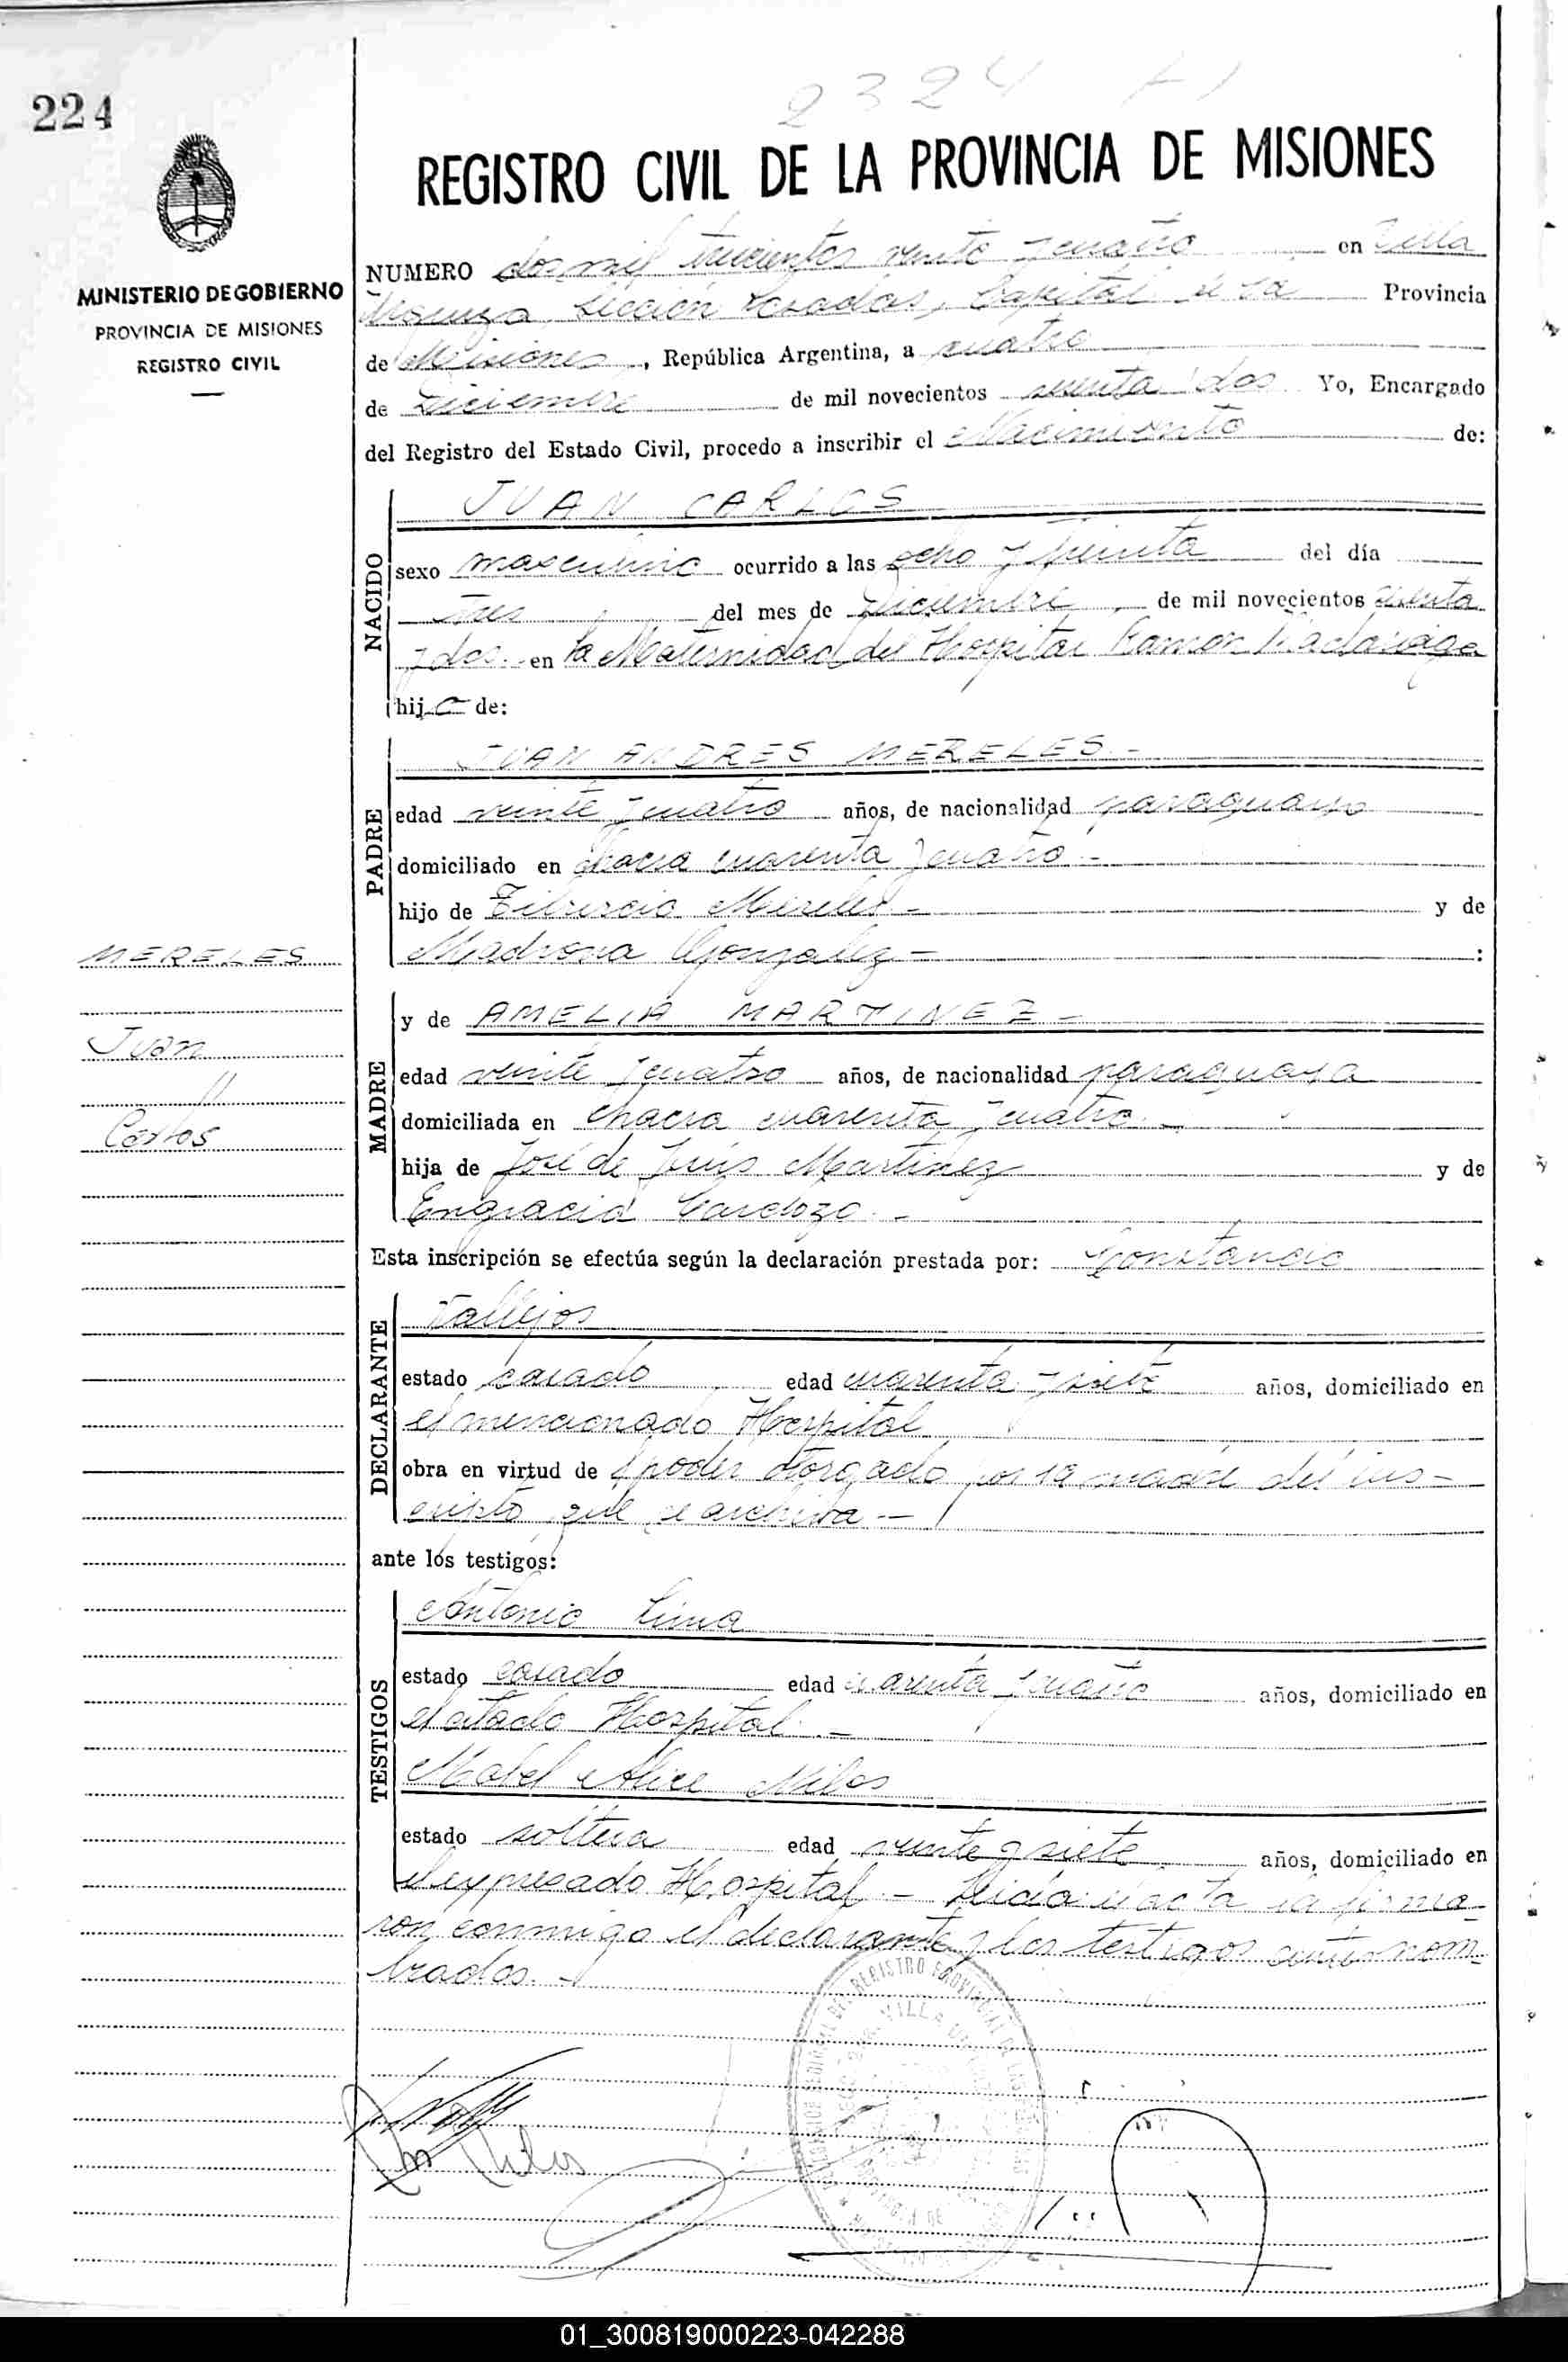 2324
224
REGISTRO CIVIL DE LA PROVINCIA DE MISIONES
MINISTERIO DE GOBIERNO
PROVINCIA DE MISIONES
REGISTRO CIVIL
NUMERO dos mil trescientos veinte y cuatro en Villa
Urquiza, Sección Posadas, Capital de la Provincia
de Misiones, República Argentina, a cuatro
de Diciembre de mil novecientos setenta dos Yo, Encargado
del Registro del Estado Civil, procedo a inscribir el Nacimiento de:
NACIDO
JUAN CARLOS
sexo masculino ocurrido a las ocho y treinta del día
tres del mes de Diciembre de mil novecientos
y dos en la Maternidad del Hospital Ramon Madariaga
hijo de:
PADRE
JUAN ANDRES MERELES.-
edad veinte y cuatro años, de nacionalidad paraguayo
domiciliado en chacra cuarenta y cuatro.-
hijo de Tiburcio Mereles - y de
Madrona Gonzalez - :
MERELES
Juan
//
Carlos
MADRE
y de AMELIA MARTINEZ -
edad veinte y cuatro años, de nacionalidad paraguaya
domiciliada en chacra cuarenta y cuatro.-
hija de José de Jesús Martinez y de
Engracia Cardozo.-
Esta inscripción se efectúa según la declaración prestada por: Constancio
DECLARANTE
Vallejos
estado casado edad cuarenta y siete años, domiciliado en
el mencionado Hospital
obra en virtud de el poder otorgado por la madre del ins-
cripto que se archiva.-
ante los testigos:
TESTIGOS
Antonio Lima
estado casado edad cuarenta y cuatro años, domiciliado en
el citado Hospital.-
Mabel Alice Milos
estado soltera edad veinte y siete años, domiciliado en
el expresado Hospital - Leida el acta la firma-
ron conmigo el declarante y los testigos antes nom-
brados.-
01_300819000223-042288